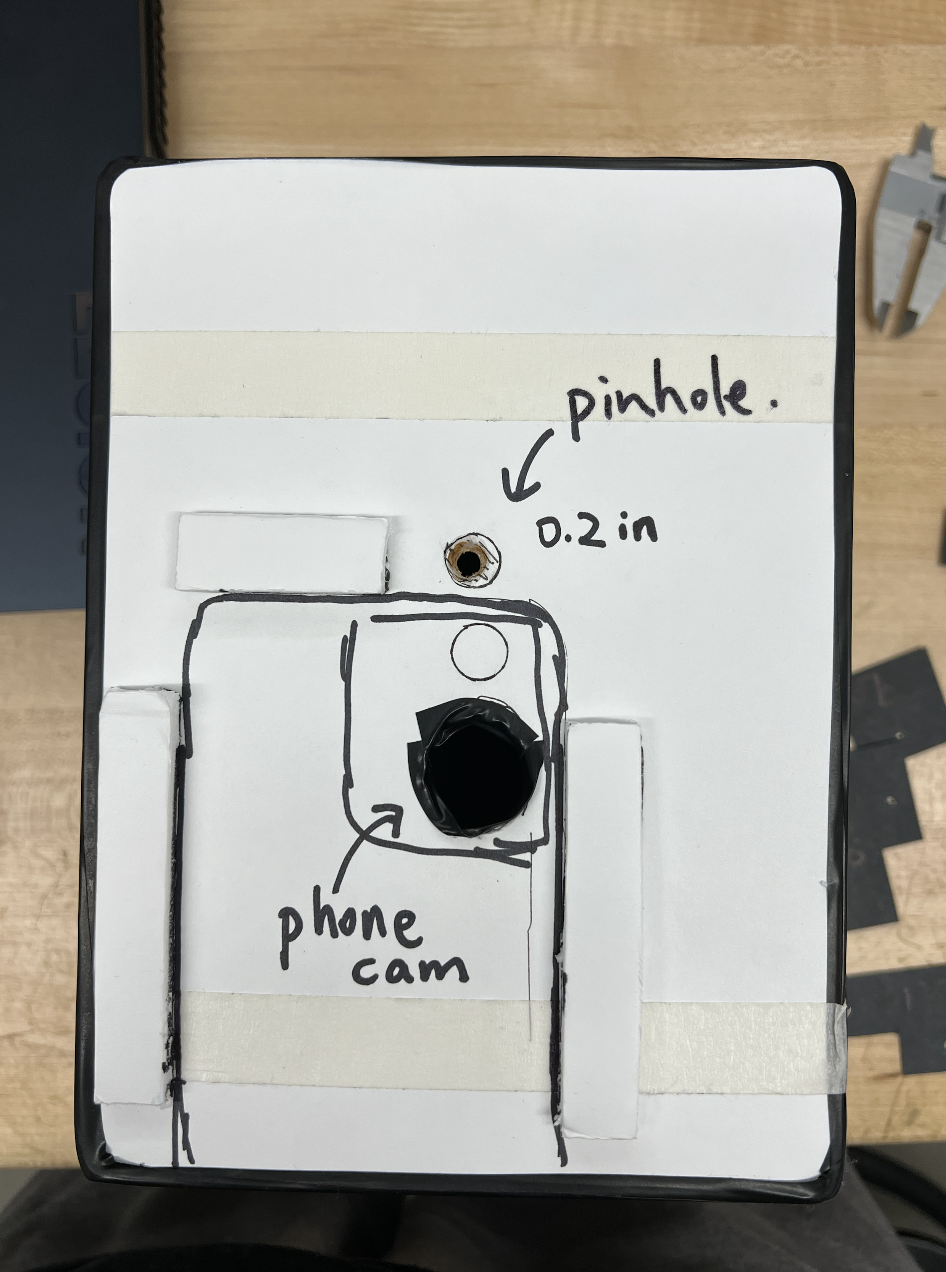 pinhole.
0.2 in
phone
cam